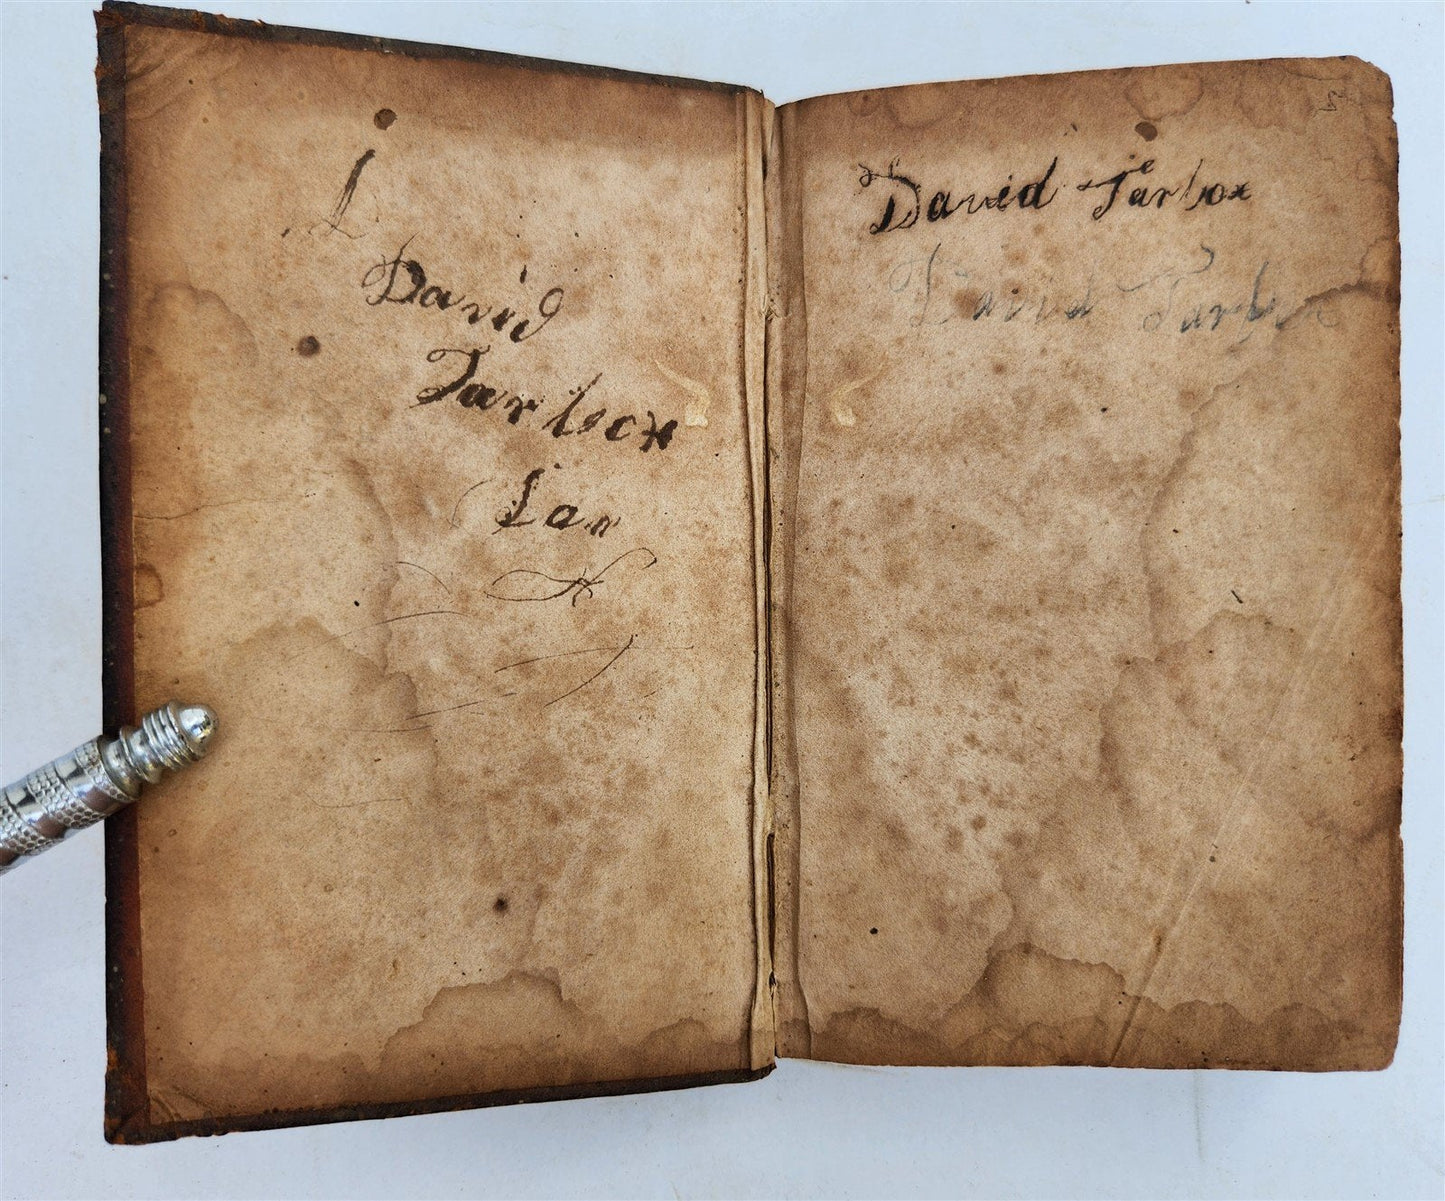 David
Tarbox
David Tarbox
David Tarbox